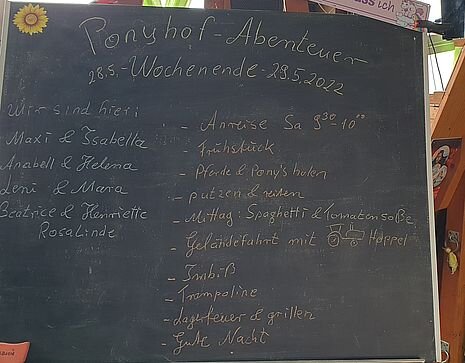 ich
Ponyhof-Abenteuer
28.5.-Wochenende-29.5.2022
Wir sind hier:
Maxi & Isabella
Anabell & Helena
Leni & Mara
Beatrice & Henriette
Rosalinde
- Anreise Sa 9³⁰-10⁰⁰
- Frühstück
- Pferde & Pony's holen
- putzen & reiten
- Mittag: Spaghetti & Tomatensoße
- Geländefahrt mit Hoppel
- Imbiß
- Trampoline
- Lagerfeuer & grillen
- Gute Nacht